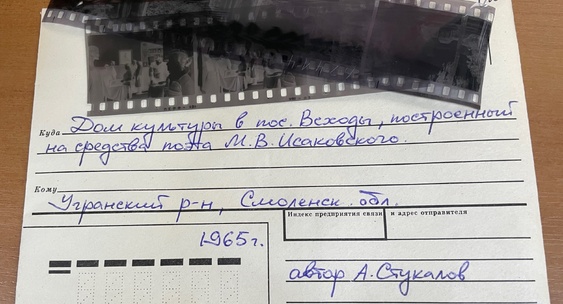 Куда Дом культуры в пос. Всходы, построенный
на средства поэта М.В.Исаковского.
Кому
Угранский р-н, Смоленск. обл.
Индекс предприятия связи и адрес отправителя
1965г.
автор А.Стукалов